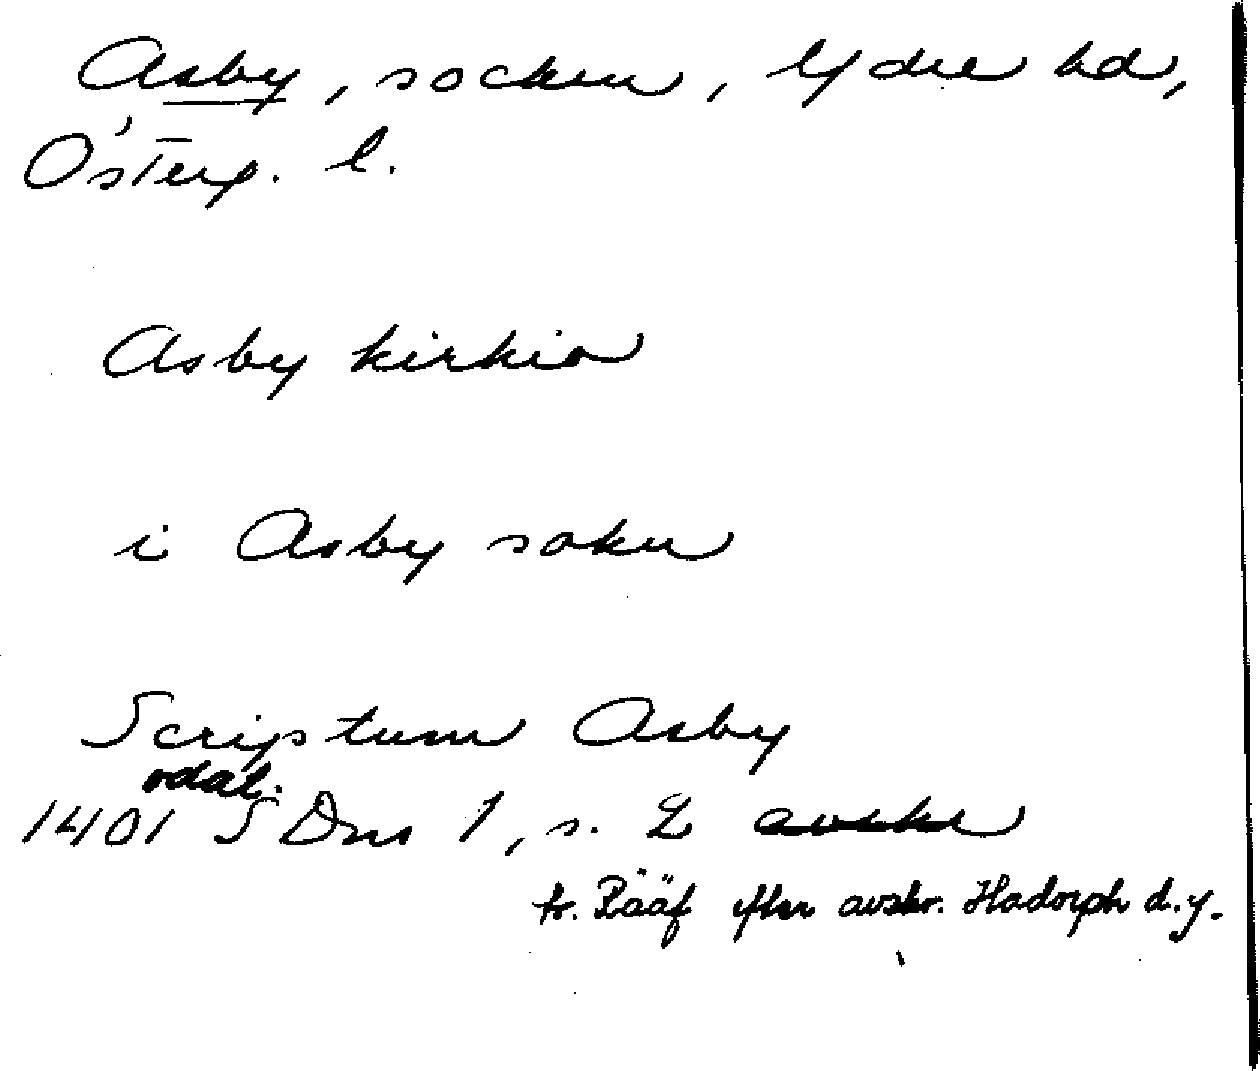 Asby, socken, Ydre hd,
Österg. l.
Asby kirkio
i Asby sokn
Scriptum Asby
odat.
1401 SDns 1, s. 2 avskr
tr. Rääf efter avskr. Hadorph d.y.